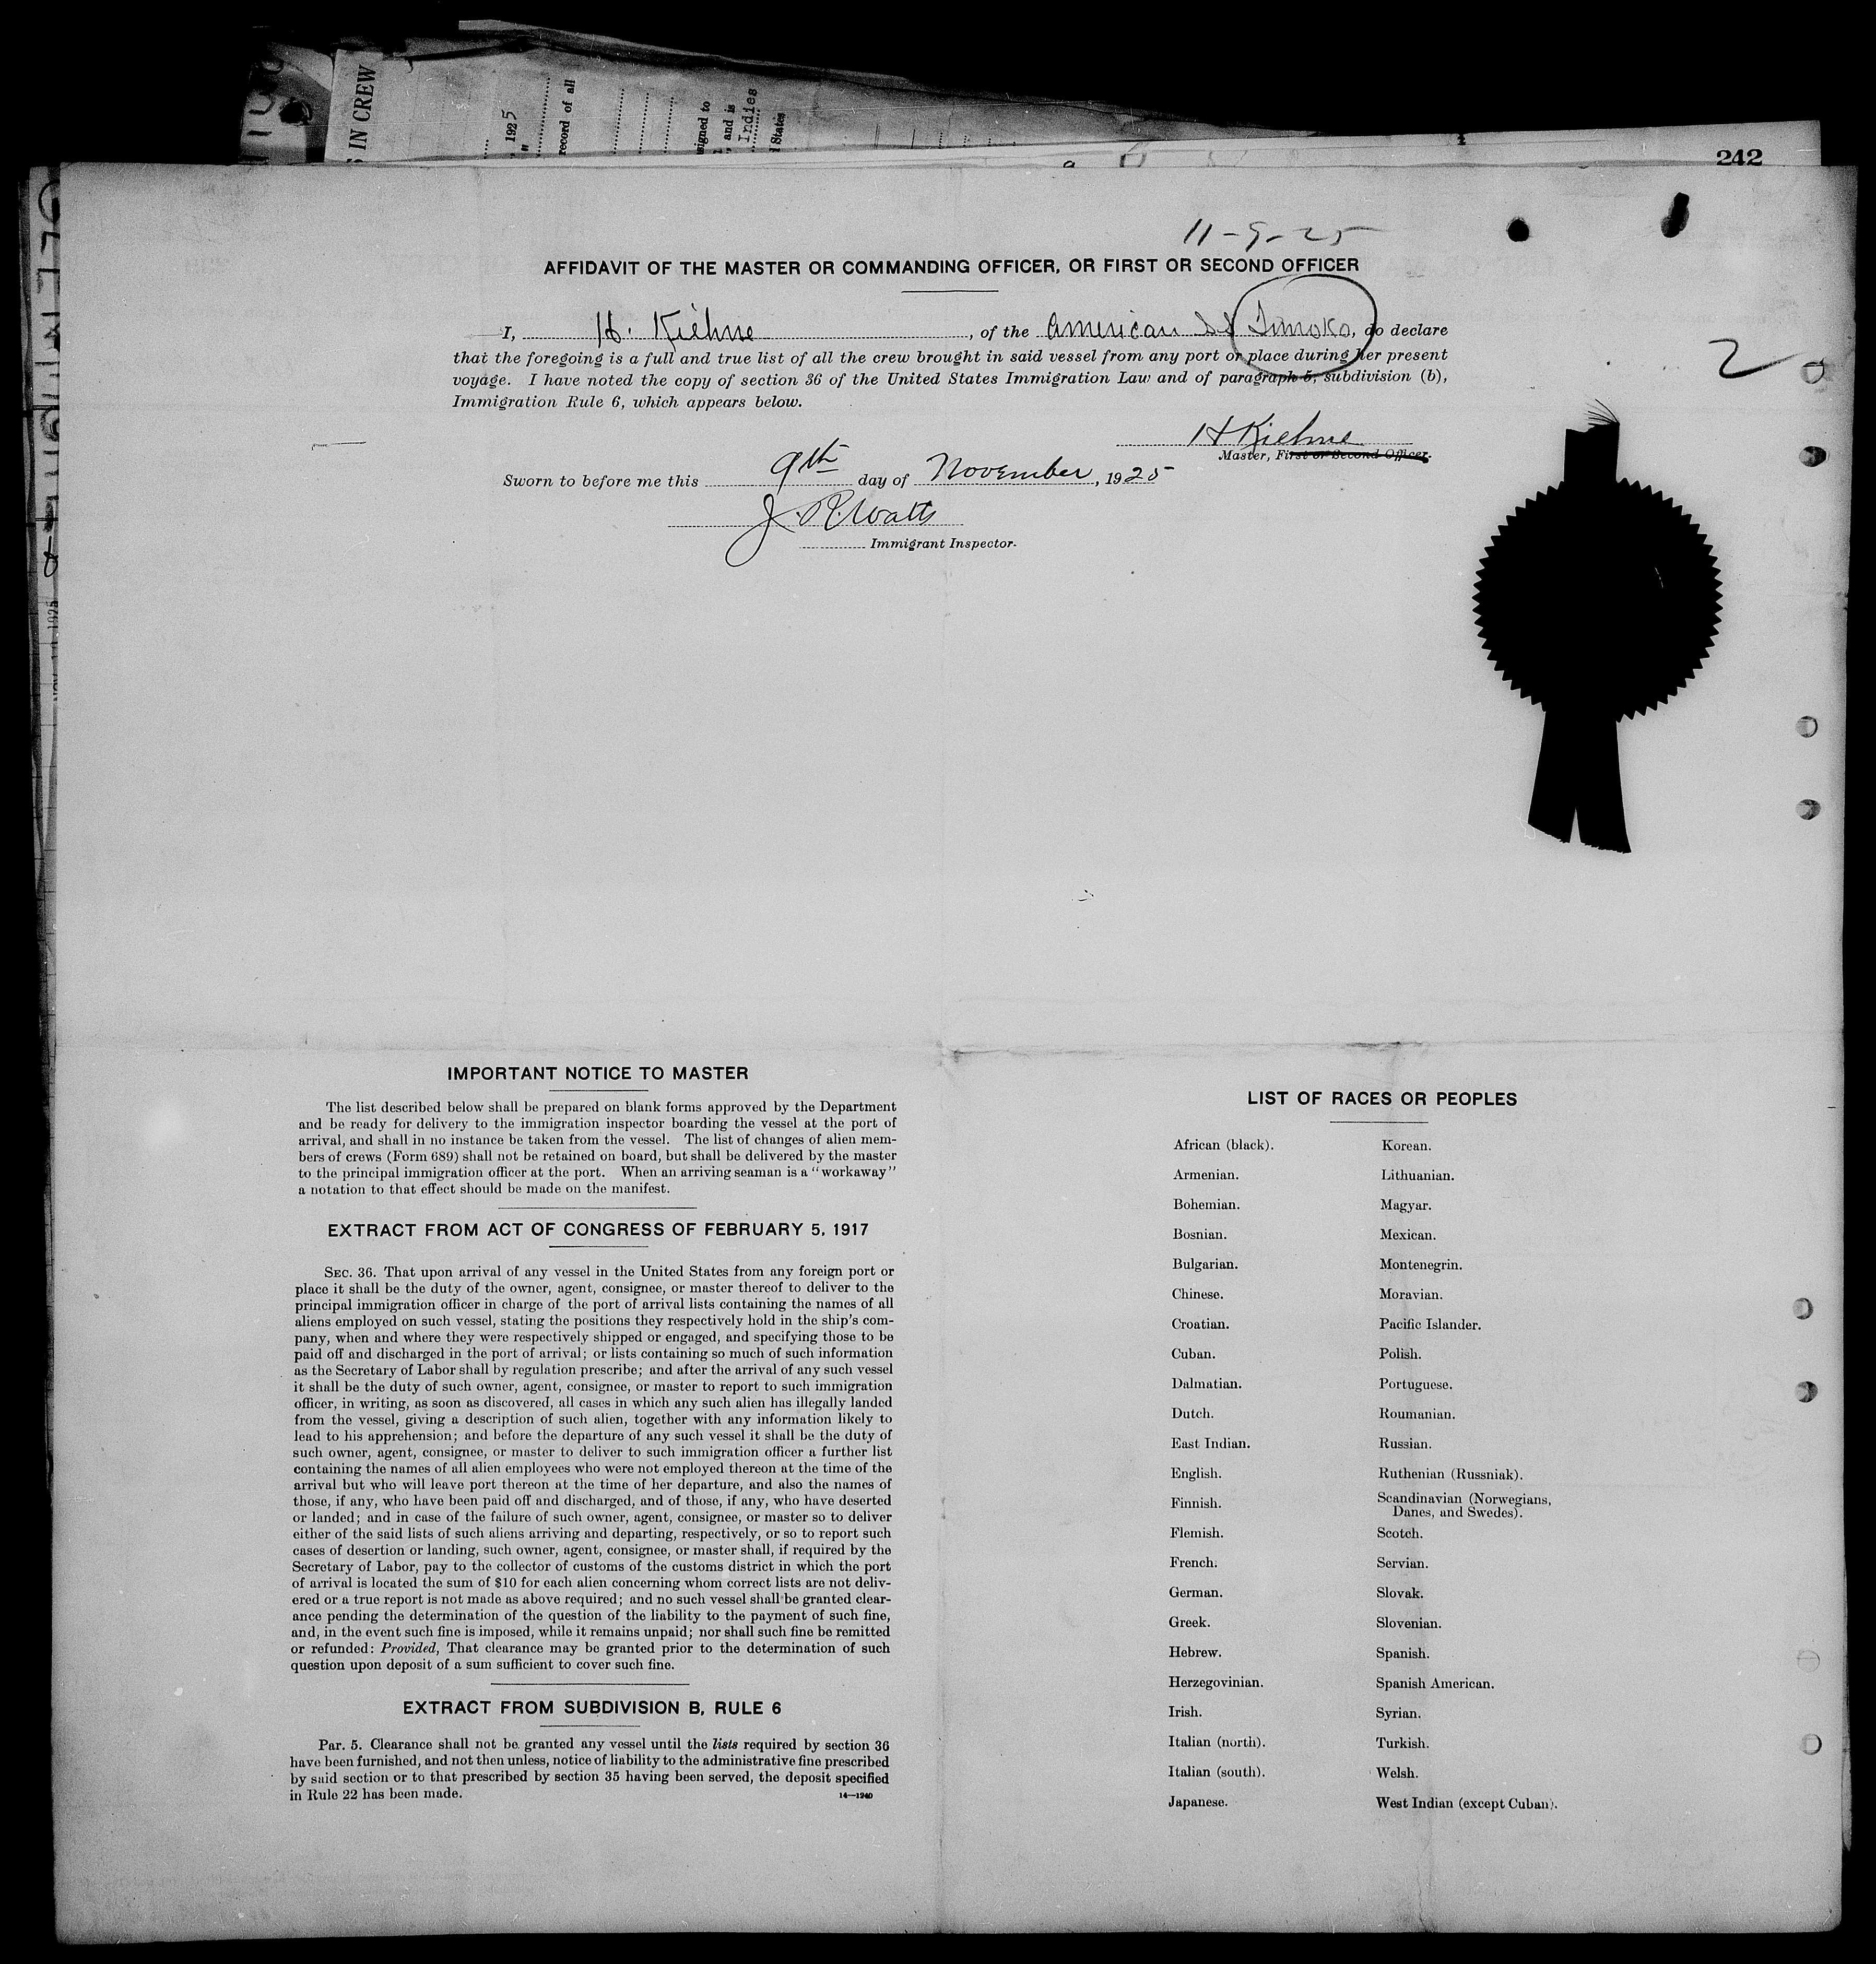 S IN CREW
, 1925
"
record of all
signed to
, and is
Indies
d States
242
11-9-25
AFFIDAVIT OF THE MASTER OR COMMANDING OFFICER, OR FIRST OR SECOND OFFICER
I, H. Kiehne, of the American SS Timoko, do declare
that the foregoing is a full and true list of all the crew brought in said vessel from any port or place during her present
voyage. I have noted the copy of section 36 of the United States Immigration Law and of paragraph 5, subdivision (b),
Immigration Rule 6, which appears below.
2
H Kiehne
Master, First or Second Officer.
Sworn to before me this 9th day of November, 1925
J. R. Watts
Immigrant Inspector.
IMPORTANT NOTICE TO MASTER
The list described below shall be prepared on blank forms approved by the Department
and be ready for delivery to the immigration inspector boarding the vessel at the port of
arrival, and shall in no instance be taken from the vessel. The list of changes of alien mem-
bers of crews (Form 689) shall not be retained on board, but shall be delivered by the master
to the principal immigration officer at the port. When an arriving seaman is a "workaway"
a notation to that effect should be made on the manifest.
EXTRACT FROM ACT OF CONGRESS OF FEBRUARY 5, 1917
SEC. 36. That upon arrival of any vessel in the United States from any foreign port or
place it shall be the duty of the owner, agent, consignee, or master thereof to deliver to the
principal immigration officer in charge of the port of arrival lists containing the names of all
aliens employed on such vessel, stating the positions they respectively hold in the ship's com-
pany, when and where they were respectively shipped or engaged, and specifying those to be
paid off and discharged in the port of arrival; or lists containing so much of such information
as the Secretary of Labor shall by regulation prescribe; and after the arrival of any such vessel
it shall be the duty of such owner, agent, consignee, or master to report to such immigration
officer, in writing, as soon as discovered, all cases in which any such alien has illegally landed
from the vessel, giving a description of such alien, together with any information likely to
lead to his apprehension; and before the departure of any such vessel it shall be the duty of
such owner, agent, consignee, or master to deliver to such immigration officer a further list
containing the names of all alien employees who were not employed thereon at the time of the
arrival but who will leave port thereon at the time of her departure, and also the names of
those, if any, who have been paid off and discharged, and of those, if any, who have deserted
or landed; and in case of the failure of such owner, agent, consignee, or master so to deliver
either of the said lists of such aliens arriving and departing, respectively, or so to report such
cases of desertion or landing, such owner, agent, consignee, or master shall, if required by the
Secretary of Labor, pay to the collector of customs of the customs district in which the port
of arrival is located the sum of $10 for each alien concerning whom correct lists are not deliv-
ered or a true report is not made as above required; and no such vessel shall be granted clear-
ance pending the determination of the question of the liability to the payment of such fine,
and, in the event such fine is imposed, while it remains unpaid; nor shall such fine be remitted
or refunded: Provided, That clearance may be granted prior to the determination of such
question upon deposit of a sum sufficient to cover such fine.
EXTRACT FROM SUBDIVISION B, RULE 6
Par. 5. Clearance shall not be granted any vessel until the lists required by section 36
have been furnished, and not then unless, notice of liability to the administrative fine prescribed
by said section or to that prescribed by section 35 having been served, the deposit specified
in Rule 22 has been made.
14—1240
LIST OF RACES OR PEOPLES
African (black).
Armenian.
Bohemian.
Bosnian.
Bulgarian.
Chinese.
Croatian.
Cuban.
Dalmatian.
Dutch.
East Indian.
English.
Finnish.
Flemish.
French.
German.
Greek.
Hebrew.
Herzegovinian.
Irish.
Italian (north).
Italian (south).
Japanese.
Korean.
Lithuanian.
Magyar.
Mexican.
Montenegrin.
Moravian.
Pacific Islander.
Polish.
Portuguese.
Roumanian.
Russian.
Ruthenian (Russniak).
Scandinavian (Norwegians,
Danes, and Swedes).
Scotch.
Servian.
Slovak.
Slovenian.
Spanish.
Spanish American.
Syrian.
Turkish.
Welsh.
West Indian (except Cuban).